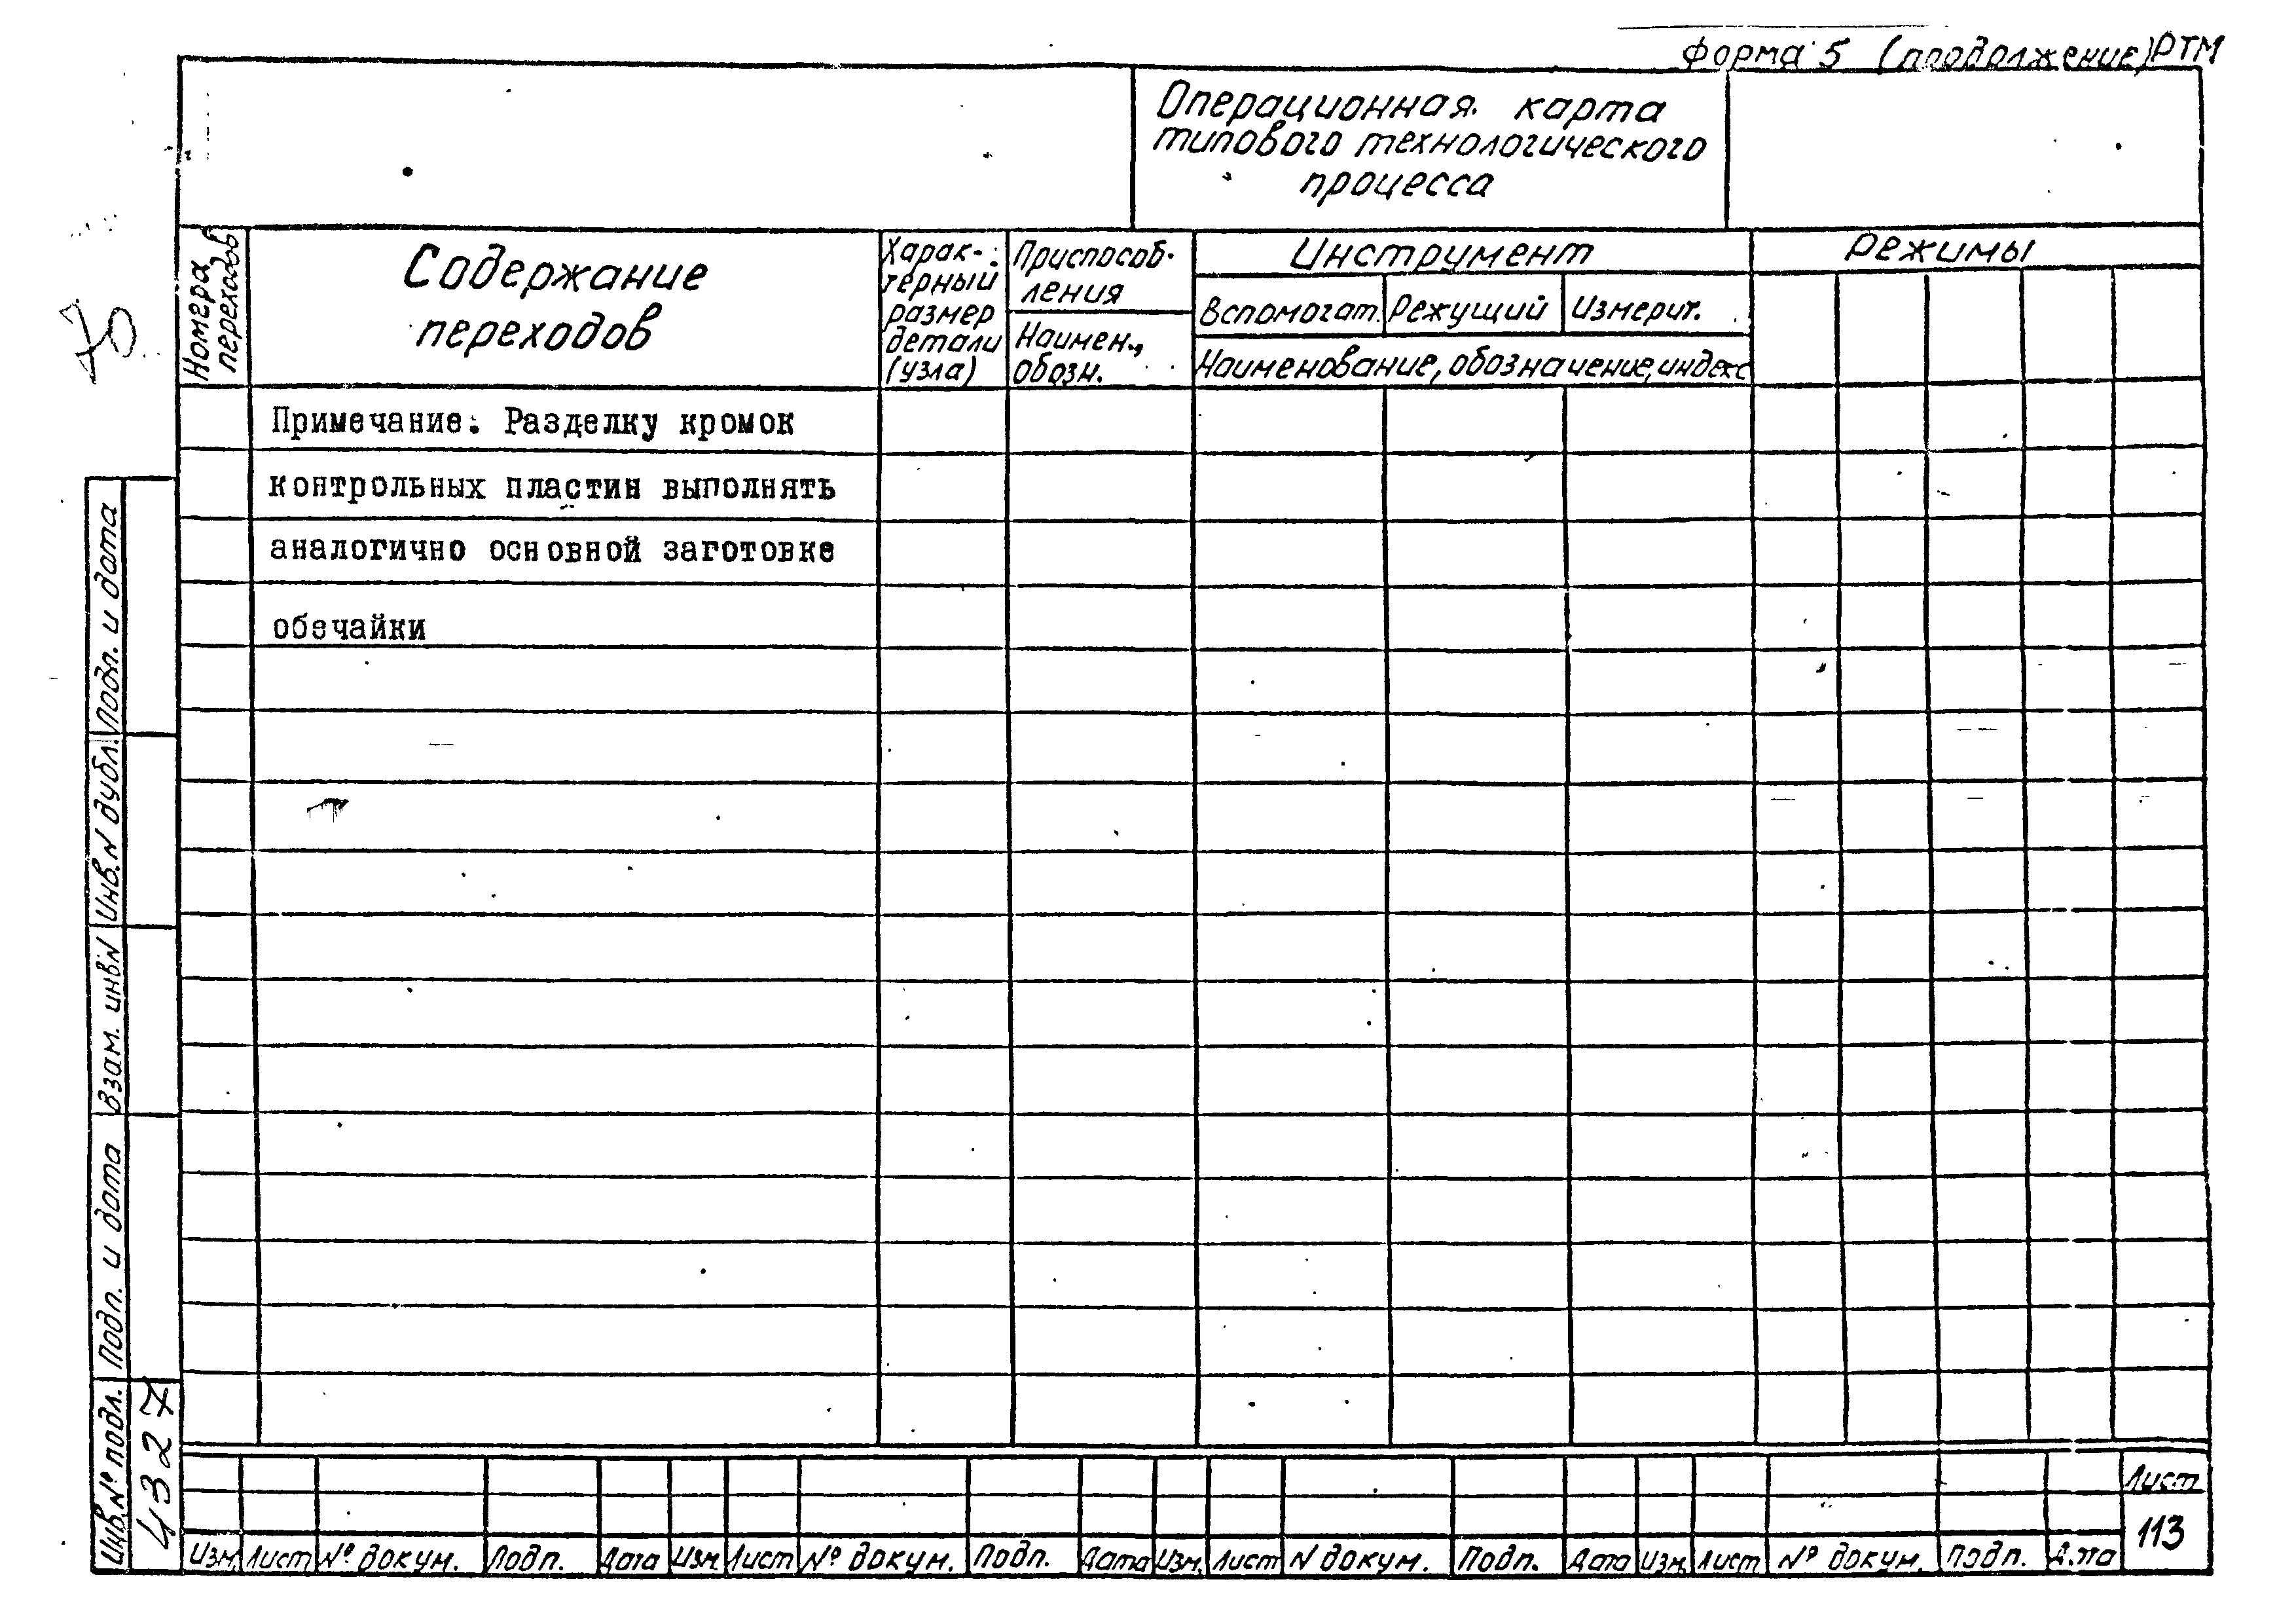 Форма 5 (продолжение) РТМ
Операционная карта
типового технологического
процесса
Номера
переходов
Содержание
переходов
Харак-
терный
размер
детали
(узла)
Приспособ-
ления
Наимен.,
обозн.
Инструмент
Вспомогат. Режущий Измерит.
Наименование, обозначение, индекс
Режимы
Примечание. Разделку кромок
контрольных пластин выполнять
аналогично основной заготовке
обечайки
Подп. и дата
Инв. N дубл.
Взам. инв N
Подп. и дата
Инв. № подл.
4327
Изм. Лист № докум. Подп. Дата Изм. Лист № докум. Подп. Дата Изм. Лист N докум. Подп. Дата Изм. Лист № докум. Подп. Дата
Лист
113